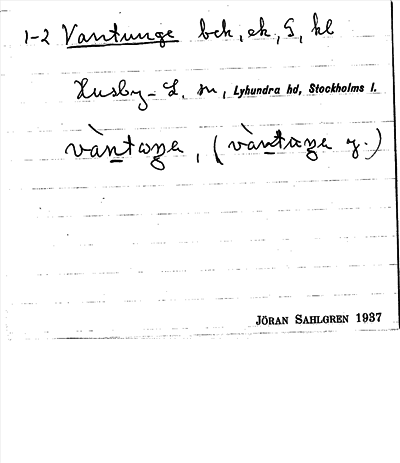 1-2 Vantunge bck, ek, S, kl
Husby-L. sn, Lyhundra hd, Stockholms l.
vàntaŋa, (vàntæŋa y.)
JÖRAN SAHLGREN 1937